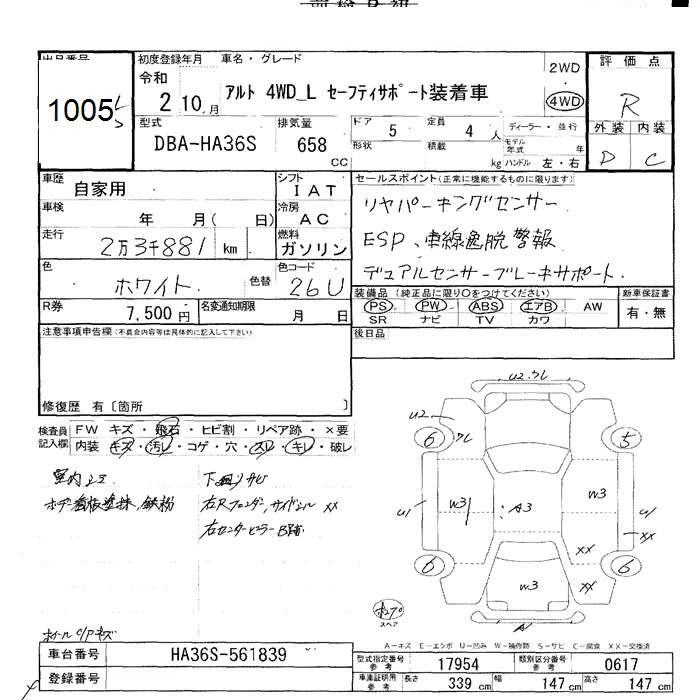 出品番号
1005
初度登録年月 車名・グレード
令和
2 10 月
アルト 4WD_L セーフティサポート装着車
2WD
4WD
評価点
R
外装 内装
D C
型式
DBA-HA36S
排気量
658
CC
ドア 5
定員 4 人
形状
積載 kg
ディーラー・並行
モデル年式 年
ハンドル 左・右
車歴 自家用
シフト IAT
車検 年 月( 日)
冷房 AC
走行 2万3千881 km
燃料 ガソリン
色 ホワイト 色替
色コード 26U
R券 7,500円
名変通知期限 月 日
セールスポイント(正常に機能するものに限ります)
リヤパーキングセンサー
ESP、車線逸脱警報
デュアルセンサーブレーキサポート.
装備品(純正品に限り○をつけてください)
PS PW ABS エアB AW
SR ナビ TV カワ
新車保証書
有・無
後日品
注意事項申告欄(不具合内容等は具体的に記入して下さい)
修復歴 有〔箇所 〕
検査員記入欄
FW キズ・飛石・ヒビ割・リペア跡・×要
内装・キズ・汚レ・コゲ・穴・スレ・キレ・破レ
室内シミ
下回りサビ
ボデー看板塗抹、鉄粉
右Rフェンダー,サイドシル XX
右センターピラー B踏
ホイールC/Pキズ
U2
6
5
6
6
U1
W3
A3
W3
U1
XX
XX
W3
XX
スペア
A
A-キズ E-エクボ U-凹み W-補修跡 S-サビ C-腐食 XX-交換済
車台番号 HA36S-561839
登録番号
型式指定番号参考 17954
類別区分番号参考 0617
車庫証明用参考 長さ 339 cm 幅 147 cm 高さ 147 cm